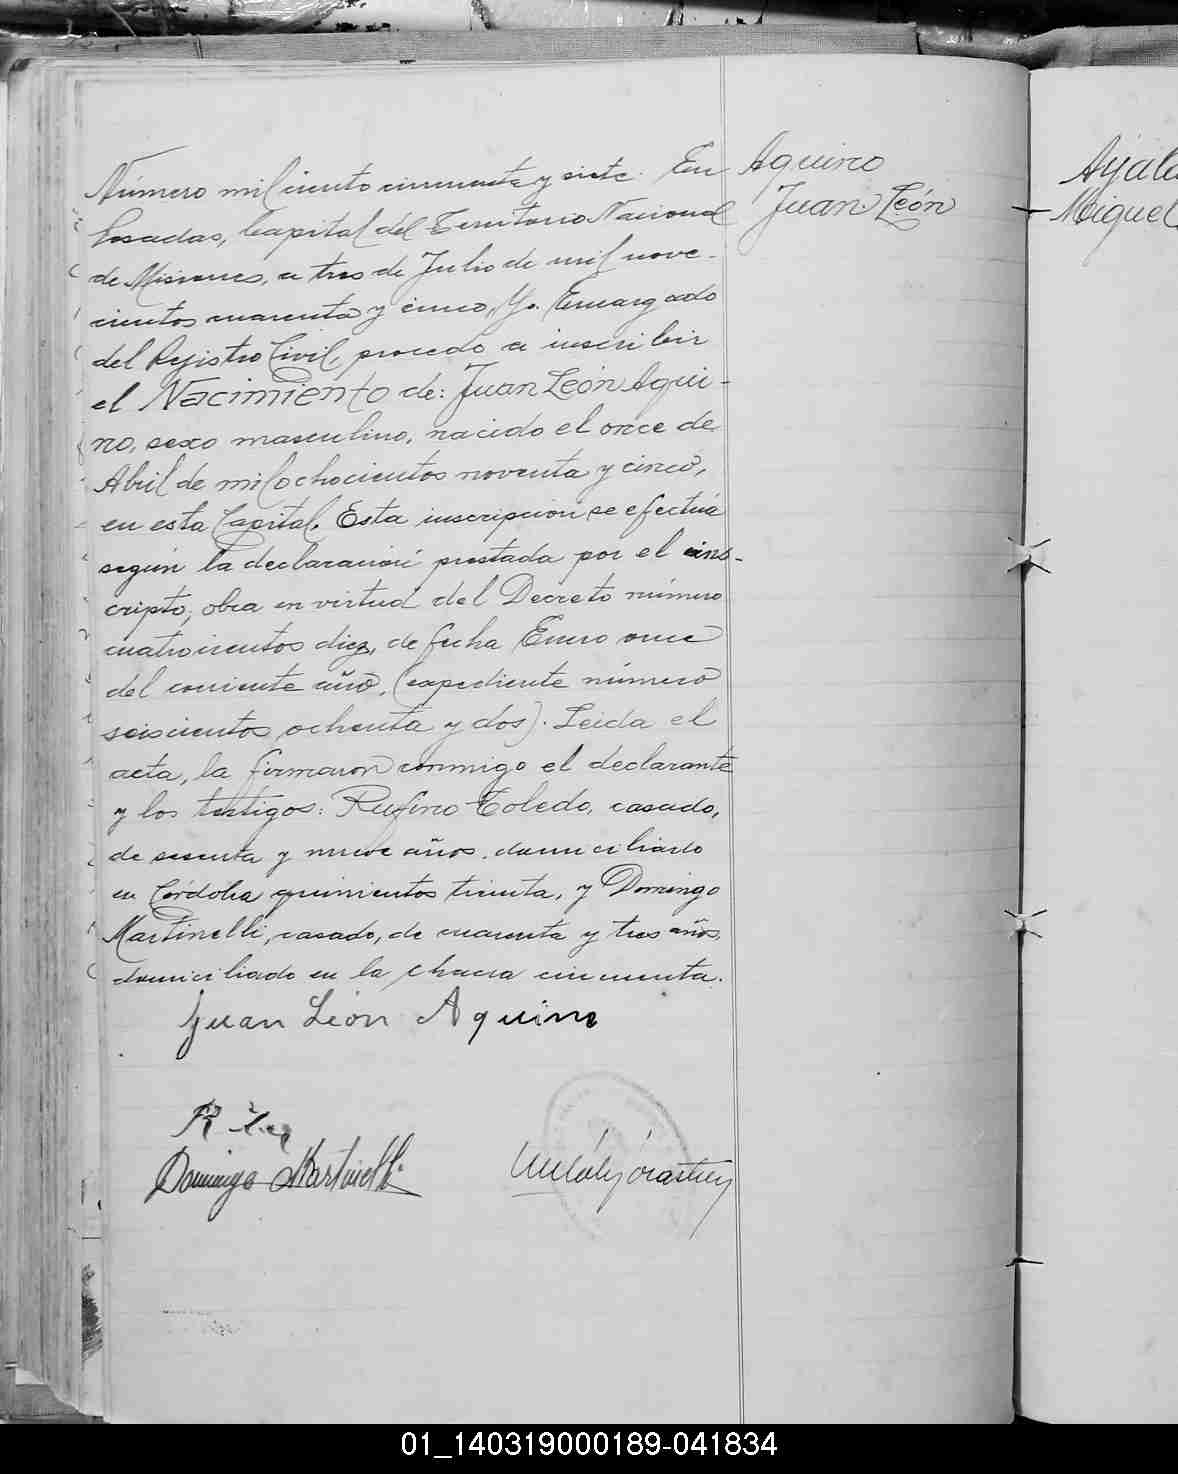 Número mil ciento cincuenta y siete. En
Posadas, Capital del Territorio Nacional
de Misiones, a tres de Julio de mil nove-
cientos cuarenta y cinco, Yo. Encargado
del Registro Civil, procedo a inscribir
el Nacimiento de: Juan León Aqui-
no, sexo masculino, nacido el once de
Abril de mil ochocientos noventa y cinco,
en esta Capital. Esta inscripción se efectúa
según la declaración prestada por el ins-
cripto, obra en virtud del Decreto número
cuatrocientos diez, de fecha Enero once
del corriente año, (expediente número
seiscientos ochenta y dos). Leida el
acta, la firmaron conmigo el declarante
y los testigos: Rufino Toledo, casado,
de sesenta y nueve años, domiciliado
en Córdoba quinientos treinta, y Domingo
Martinelli, casado, de cuarenta y tres años,
domiciliado en la chacra cincuenta.
Juan León Aquino
Domingo Martinelli
Aquino
Juan León
Ayala
Miguel
01_140319000189-041834